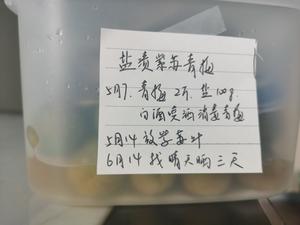 盐渍紫苏青梅
5月7. 青梅 2斤. 盐 100g
白酒喷洒消毒青梅
5月14 放紫苏叶
6月14 找晴天晒三天